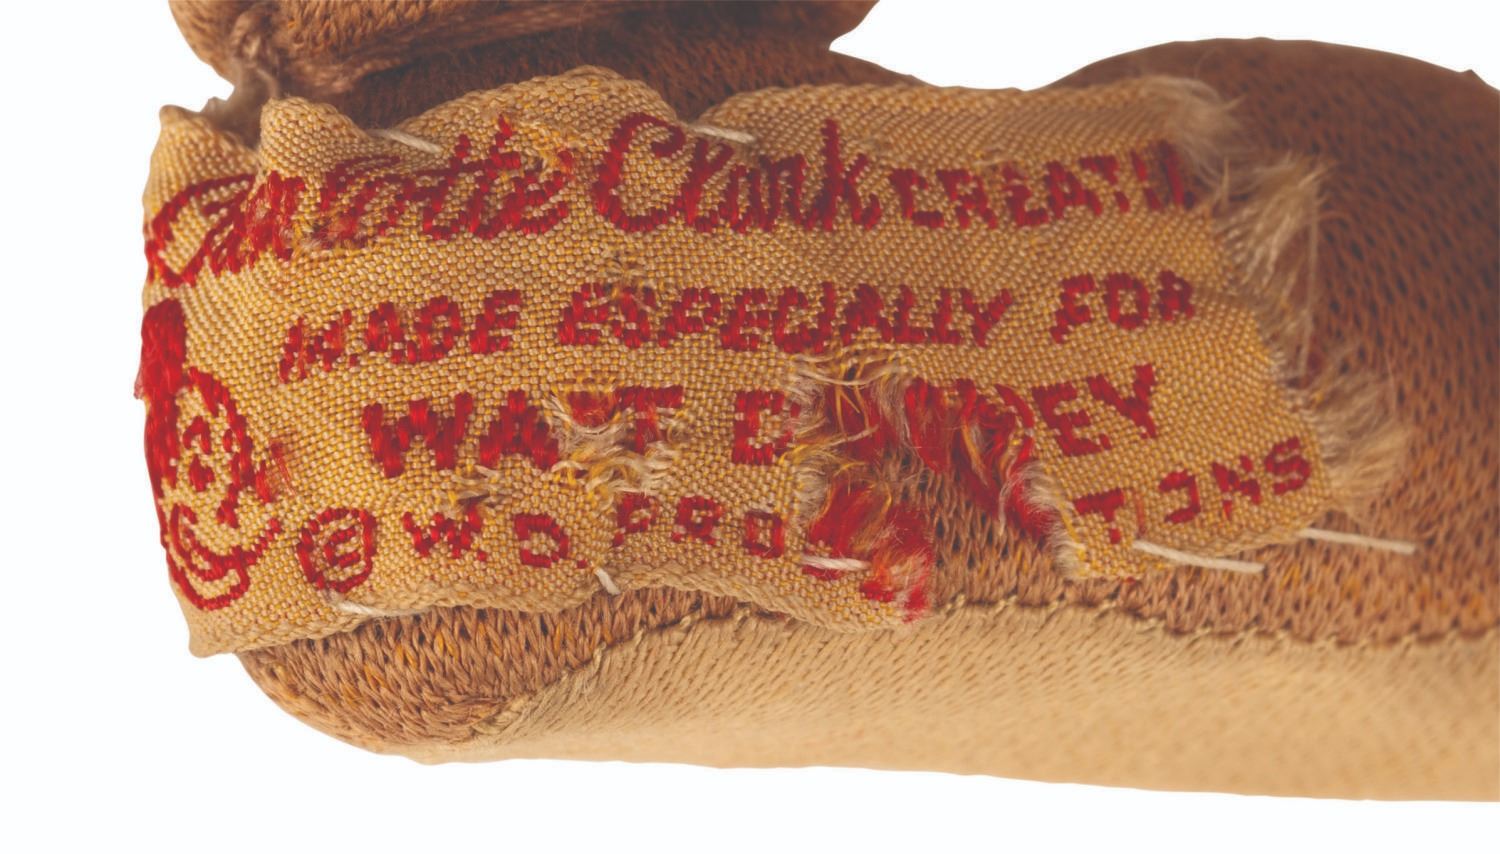 Charlotte Clark CREATI
MADE ESPECIALLY FOR
WALT D NEY
© W. D. PRO TIONS